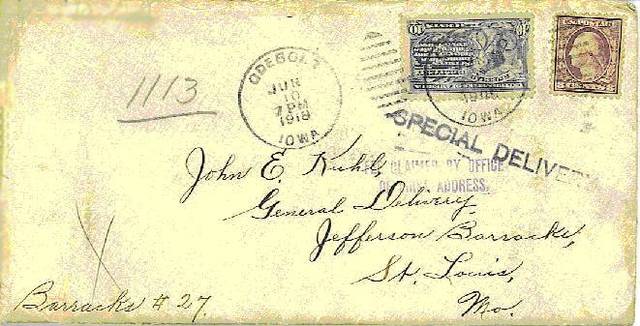 1113
ODEBOLT
JUN
10
7 PM
1918
IOWA
10
U.S. POSTAGE
1918
IOWA
SPECIAL DELIVERY
CLAIMED BY OFFICE
ADDRESS.
John E. Kuhl,
General Delivery,
Jefferson Barracks,
St. Louis,
Mo.
Barracks # 27.